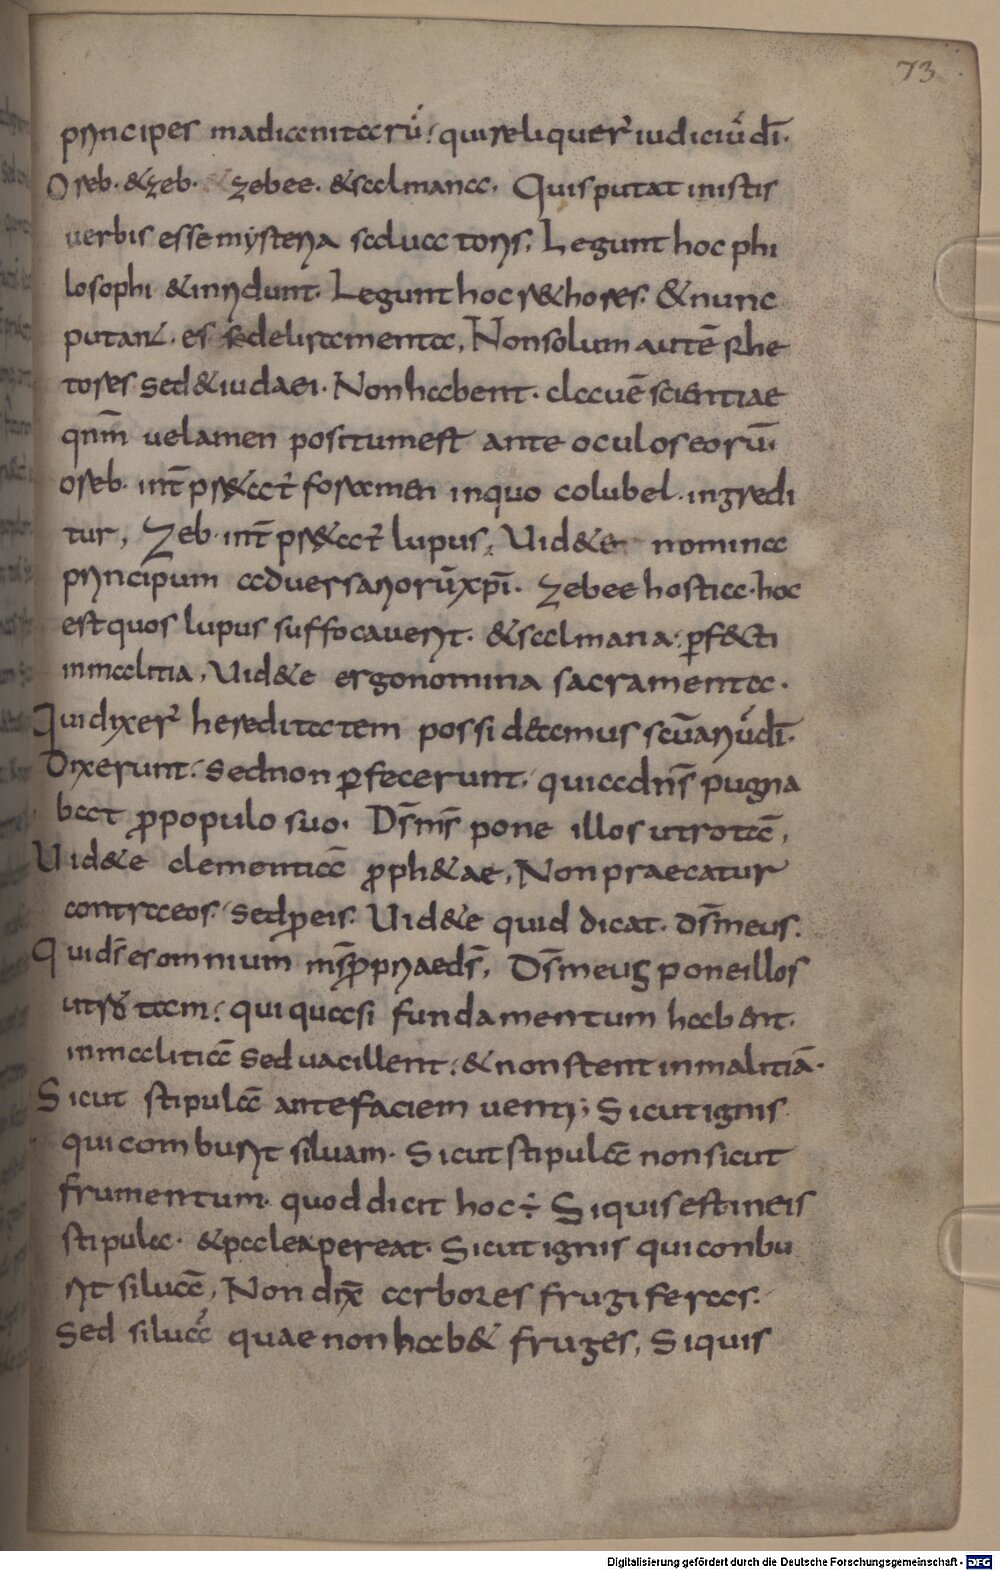 73
principes madianitarū. quireliquer̄ iudiciū dī.
Oreb. &zeb. & zebee. &salmana. Quisputat inistis
uerbis esse mysteria saluatoris, Legunt hoc phi
losophi &inrıdunt. Legunt hoc r&hores. &nunc
putant. es se delira menta, Nonsolum autē Rhe
tores sed&iudaei. Non habent. clauē scientiae
qnm̄ uelamen positumest ante oculos eorū.
oreb. int̄pr&at̄ foramen inquo colubel. ingredi
tur, Zeb. int̄pr&at̄ lupus, Uid&e nomina
principum aduersariorūxp̄i. Zebee hostia. hoc
estquos lupus suffocauerit. &salmana. p̄f&ti
inmalitia, Uid&e ergonomina sacramenta.
Quidixer̄ hereditatem possideamus scūariū dī.
Dixerunt. sednon p̄fecerunt. quiadn̄s pugna
bat p̄populo suo. Ds̄ms̄ pone illos utrotā,
Uid&e clementiā p̄ph&ae, Non praecatur
contraeos. sedp̄eis. Uid&e quid dicat. ds̄meus.
Quids̄es omnium ms̄p̄priaeds̄, Ds̄meus poneillos
utrotam. qui quasi fundamentum habent.
inmalitiā sed uacillent. &nonstent inmalitiā.
Sicut stipulā antefaciem uenti; Sicutignis
quicomburit siluam. Sicut stipulā nonsicut
frumentum. quoddicit hoc ÷ Siquis estineis
stipula. &palea pereat. Sicut ignis quiconbu
rit siluā, Non dix̄ arbores frugiferas.
Sed siluā quae non hab& fruges, Siquis
Digitalisierung gefördert durch die Deutsche Forschungsgemeinschaft - DFG